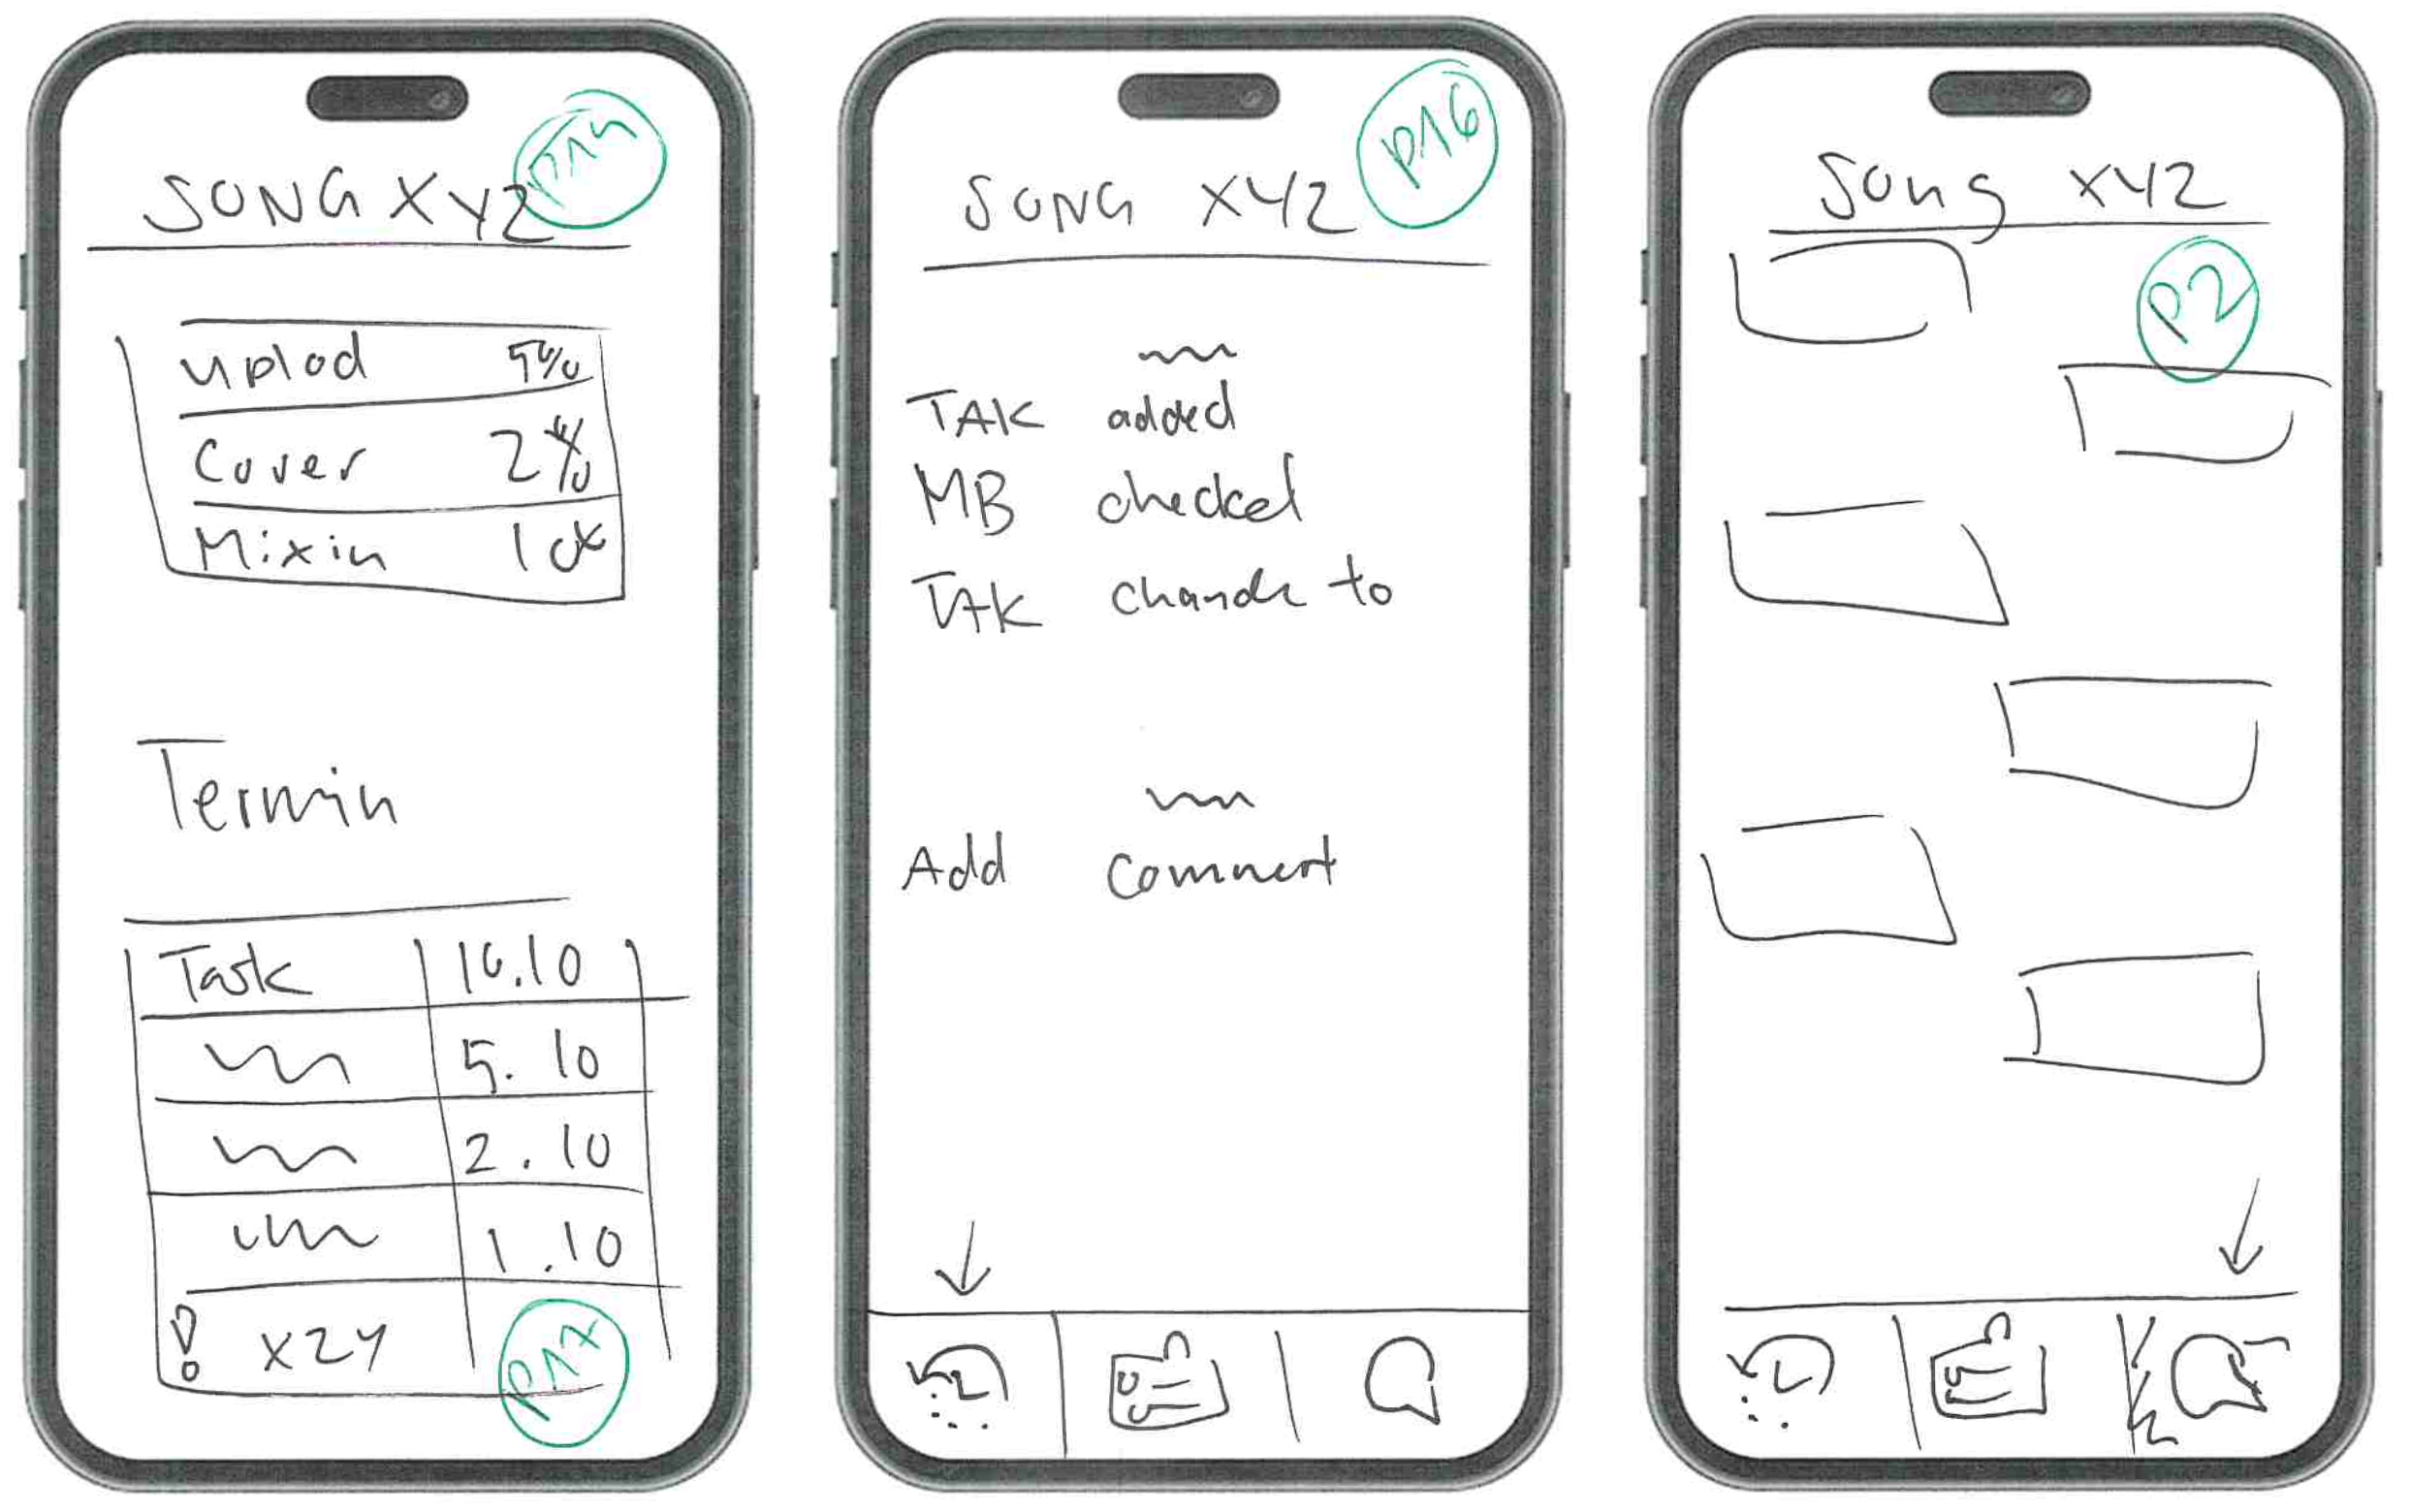 SONG XYZ
P14
Uplod 5%
Cover 2%
Mixin
Termin
Task 10.10
5. 10
2. 10
1. 10
! XZY
P17
SONG XYZ
P16
TAK added
MB checked
TAK to
Add Comment
Song XYZ
P2